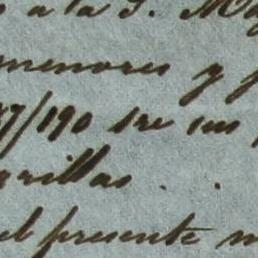 a la S. M
menores y
7/190 sre sus
rillas . .
el presente